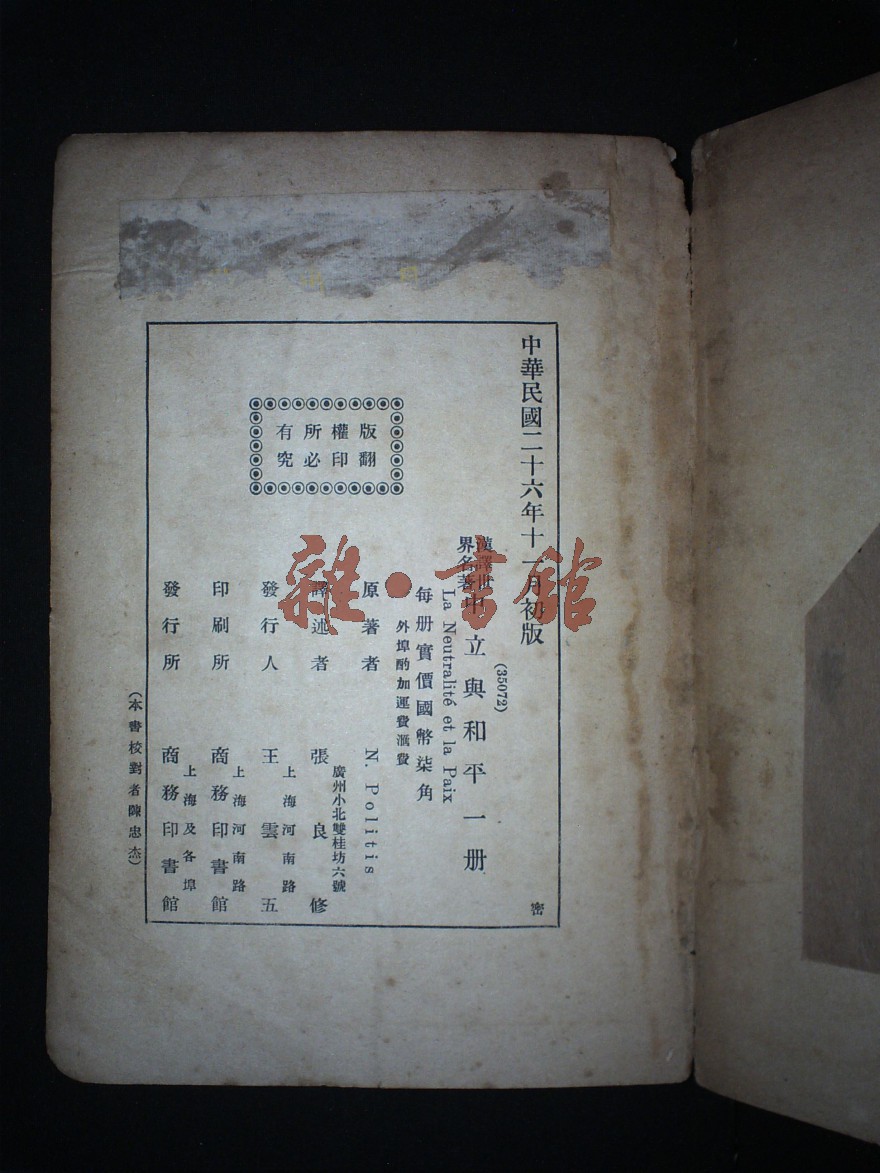 中華民國二十六年十一月初版
(35072)
漢譯世界名著
中立與和平一册
La Neutralité et la Paix
每册實價國幣柒角
外埠酌加運費滙費
版權所有
翻印必究
原著者 N. Politis
譯述者 張良修
廣州小北雙桂坊六號
發行人 王雲五
上海河南路
印刷所 商務印書館
上海河南路
發行所 商務印書館
上海及各埠
(本書校對者陳忠杰)
密
雜·書館